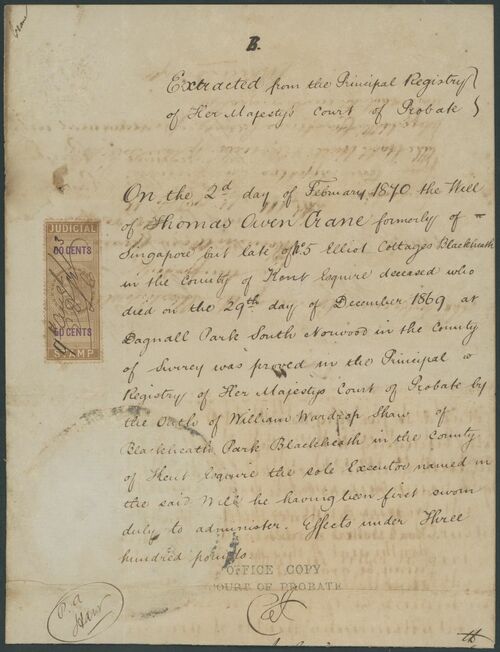 B.
Extracted from the Principal Registry
of Her Majestys Court of Probate
On the 2d day of February 1870 the Will
of Thomas Owen Crane formerly of
Singapore but late of No. 5 Elliot Cottages Blackheath
in the County of Kent Esquire deceased who
died on the 29th day of December 1869 at
Dagnall Park South Norwood in the County
of Surrey was proved in the Principal
Registry of Her Majestys Court of Probate by
the Oath of William Wardrop Shaw of
Blackheath Park Blackheath in the County
of Kent Esquire the sole Executor named in
the said Will he having been first sworn
duly to administer. Effects under Three
hundred pounds.
JUDICIAL
60 CENTS
60 CENTS
STAMP
OFFICE COPY
COURT OF PROBATE